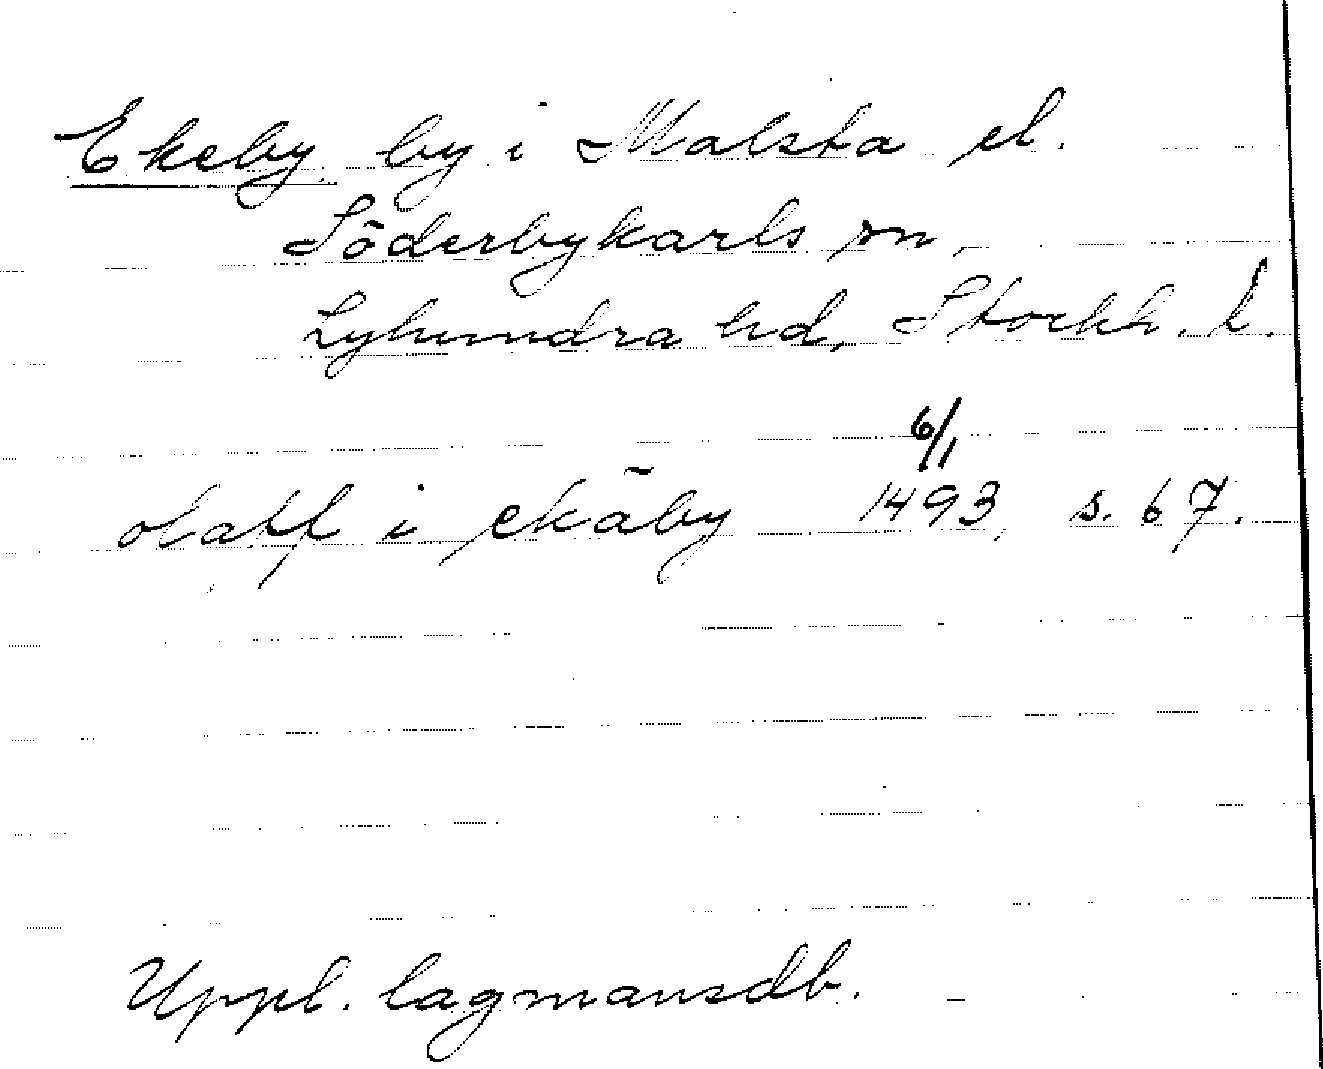 Ekeby by i Malsta el.
Söderbykarls sn,
Lyhundra hd, Stockh. l.
6/1
olaff i ekäby 1493, s. 67.
Uppl. lagmansdb.